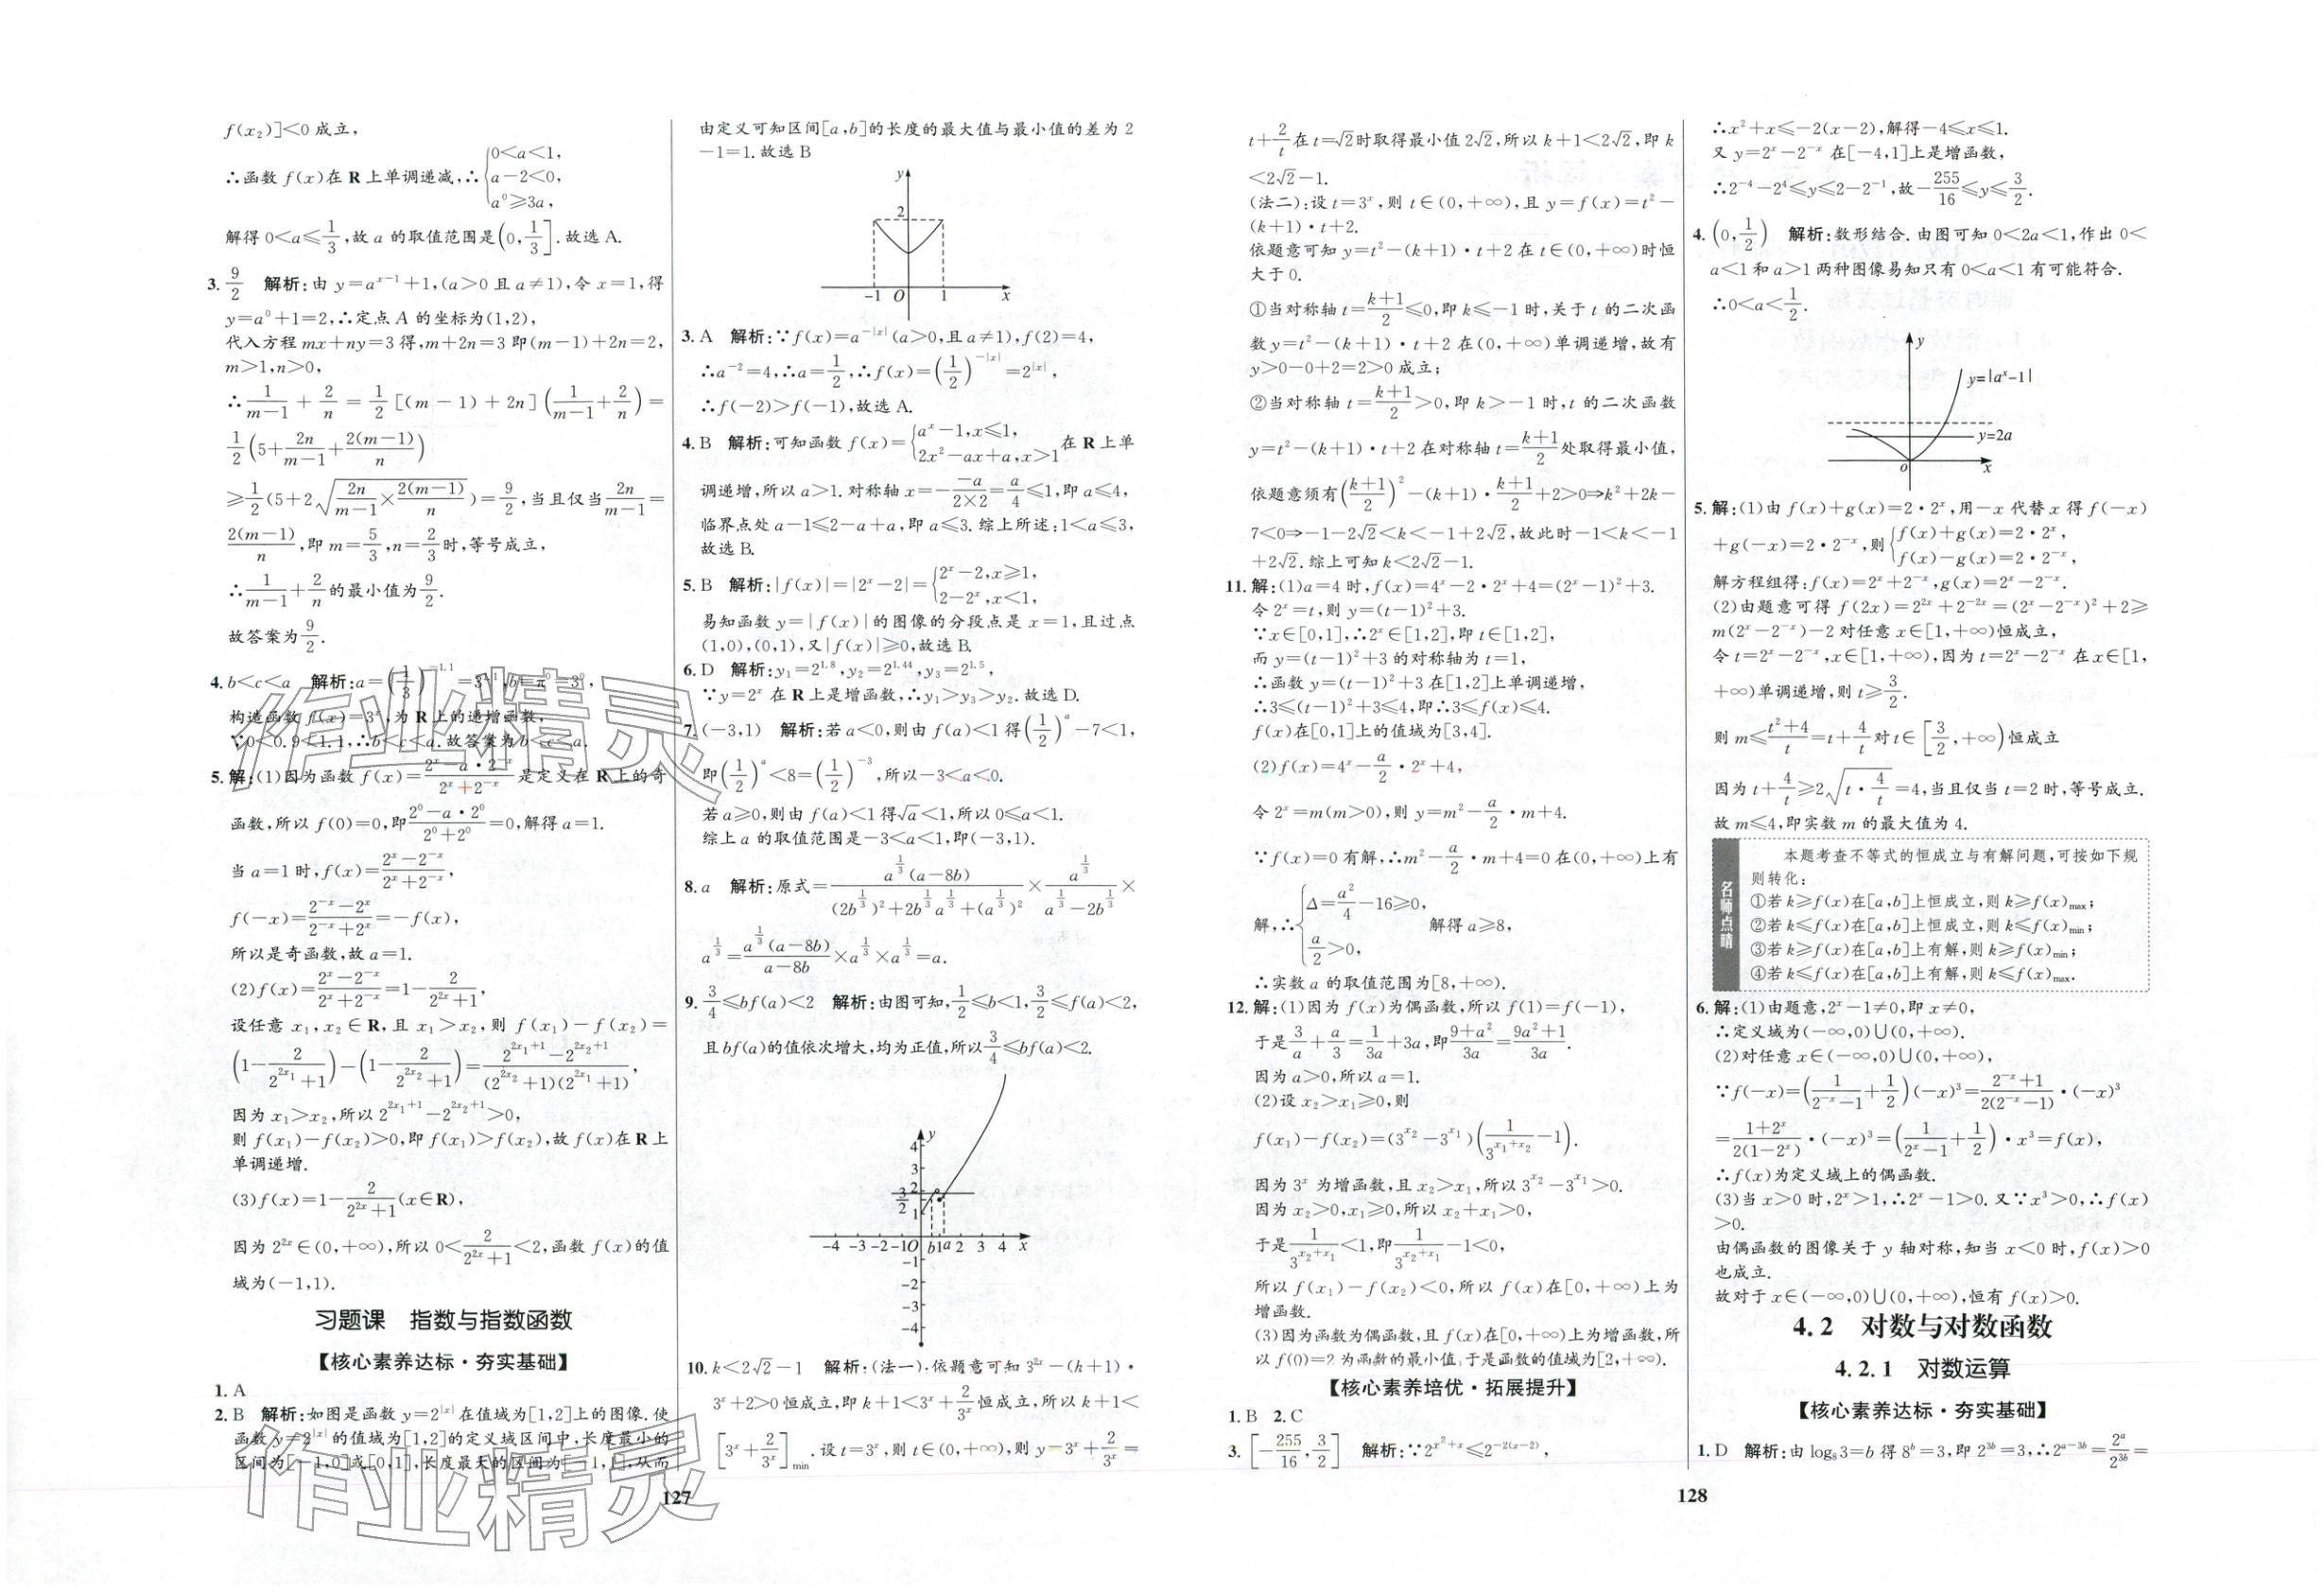 f(x₂)]<0成立,
∴函数f(x)在R上单调递减,∴{0<a<1, a-2<0, a⁰≥3a,
解得0<a≤1/3,故a的取值范围是(0,1/3].故选A.
3. 9/2 解析:由y=a^(x-1)+1,(a>0且a≠1),令x=1,得
y=a⁰+1=2,∴定点A的坐标为(1,2),
代入方程mx+ny=3得,m+2n=3即(m-1)+2n=2,
m>1,n>0,
∴1/(m-1)+2/n=1/2[(m-1)+2n](1/(m-1)+2/n)=
1/2(5+2n/(m-1)+2(m-1)/n)
≥1/2(5+2√(2n/(m-1)×2(m-1)/n))=9/2,当且仅当2n/(m-1)=
2(m-1)/n,即m=5/3,n=2/3时,等号成立,
∴1/(m-1)+2/n的最小值为9/2.
故答案为9/2.
4. b<c<a 解析:a=(1/3)^(-1.1)=3^1.1,b=π⁰=3⁰,
构造函数f(x)=3^x,为R上的递增函数,
∵0<0.9<1.1,∴b<c<a.故答案为b<c<a.
5. 解:(1)因为函数f(x)=(2^x-a·2^(-x))/(2^x+2^(-x))是定义在R上的奇
函数,所以f(0)=0,即(2⁰-a·2⁰)/(2⁰+2⁰)=0,解得a=1.
当a=1时,f(x)=(2^x-2^(-x))/(2^x+2^(-x)),
f(-x)=(2^(-x)-2^x)/(2^(-x)+2^x)=-f(x),
所以是奇函数,故a=1.
(2)f(x)=(2^x-2^(-x))/(2^x+2^(-x))=1-2/(2^(2x)+1),
设任意x₁,x₂∈R,且x₁>x₂,则f(x₁)-f(x₂)=
(1-2/(2^(2x₁)+1))-(1-2/(2^(2x₂)+1))=(2^(2x₁+1)-2^(2x₂+1))/((2^(2x₂)+1)(2^(2x₁)+1)),
因为x₁>x₂,所以2^(2x₁+1)-2^(2x₂+1)>0,
则f(x₁)-f(x₂)>0,即f(x₁)>f(x₂),故f(x)在R上
单调递增.
(3)f(x)=1-2/(2^(2x)+1)(x∈R),
因为2^(2x)∈(0,+∞),所以0<2/(2^(2x)+1)<2,函数f(x)的值
域为(-1,1).
习题课 指数与指数函数
【核心素养达标·夯实基础】
1. A
2. B 解析:如图是函数y=2^|x|在值域为[1,2]上的图像.使
函数y=2^|x|的值域为[1,2]的定义域区间中,长度最小的
区间为[-1,0]或[0,1],长度最大的区间为[-1,1],从而
由定义可知区间[a,b]的长度的最大值与最小值的差为2
-1=1.故选B
y
2
-1 O 1 x
3. A 解析:∵f(x)=a^(-|x|)(a>0,且a≠1),f(2)=4,
∴a^(-2)=4,∴a=1/2,∴f(x)=(1/2)^(-|x|)=2^|x|,
∴f(-2)>f(-1),故选A.
4. B 解析:可知函数f(x)={a^x-1,x≤1, 2x²-ax+a,x>1在R上单
调递增,所以a>1.对称轴x=-(-a)/(2×2)=a/4≤1,即a≤4,
临界点处a-1≤2-a+a,即a≤3.综上所述:1<a≤3,
故选B.
5. B 解析:|f(x)|=|2^x-2|={2^x-2,x≥1, 2-2^x,x<1,
易知函数y=|f(x)|的图像的分段点是x=1,且过点
(1,0),(0,1),又|f(x)|≥0,故选B.
6. D 解析:y₁=2^1.8,y₂=2^1.44,y₃=2^1.5,
∵y=2^x在R上是增函数,∴y₁>y₃>y₂.故选D.
7. (-3,1) 解析:若a<0,则由f(a)<1得(1/2)^a-7<1,
即(1/2)^a<8=(1/2)^(-3),所以-3<a<0.
若a≥0,则由f(a)<1得√a<1,所以0≤a<1.
综上a的取值范围是-3<a<1,即(-3,1).
8. a 解析:原式=a^(1/3)(a-8b)/((2b^(1/3))²+2b^(1/3)a^(1/3)+(a^(1/3))²)×a^(1/3)/(a^(1/3)-2b^(1/3))×
a^(1/3)=a^(1/3)(a-8b)/(a-8b)×a^(1/3)×a^(1/3)=a.
9. 3/4≤bf(a)<2 解析:由图可知,1/2≤b<1,3/2≤f(a)<2,
且bf(a)的值依次增大,均为正值,所以3/4≤bf(a)<2.
y
4
3
2
3/2
1
-4 -3 -2 -1 O b 1 a 2 3 4 x
-1
-2
-3
-4
10. k<2√2-1 解析:(法一):依题意可知3^(2x)-(k+1)·
3^x+2>0恒成立,即k+1<3^x+2/3^x恒成立,所以k+1<
[3^x+2/3^x]min.设t=3^x,则t∈(0,+∞),则y=3^x+2/3^x=
127
t+2/t在t=√2时取得最小值2√2,所以k+1<2√2,即k
<2√2-1.
(法二):设t=3^x,则t∈(0,+∞),且y=f(x)=t²-
(k+1)·t+2.
依题意可知y=t²-(k+1)·t+2在t∈(0,+∞)时恒
大于0.
①当对称轴t=(k+1)/2≤0,即k≤-1时,关于t的二次函
数y=t²-(k+1)·t+2在(0,+∞)单调递增,故有
y>0-0+2=2>0成立;
②当对称轴t=(k+1)/2>0,即k>-1时,t的二次函数
y=t²-(k+1)·t+2在对称轴t=(k+1)/2处取得最小值,
依题意须有((k+1)/2)²-(k+1)·(k+1)/2+2>0⇒k²+2k-
7<0⇒-1-2√2<k<-1+2√2,故此时-1<k<-1
+2√2.综上可知k<2√2-1.
11. 解:(1)a=4时,f(x)=4^x-2·2^x+4=(2^x-1)²+3.
令2^x=t,则y=(t-1)²+3.
∵x∈[0,1],∴2^x∈[1,2],即t∈[1,2],
而y=(t-1)²+3的对称轴为t=1,
∴函数y=(t-1)²+3在[1,2]上单调递增,
∴3≤(t-1)²+3≤4,即∴3≤f(x)≤4.
f(x)在[0,1]上的值域为[3,4].
(2)f(x)=4^x-a/2·2^x+4,
令2^x=m(m>0),则y=m²-a/2·m+4.
∵f(x)=0有解,∴m²-a/2·m+4=0在(0,+∞)上有
解,∴{Δ=a²/4-16≥0, a/2>0, 解得a≥8,
∴实数a的取值范围为[8,+∞).
12. 解:(1)因为f(x)为偶函数,所以f(1)=f(-1),
于是3/a+a/3=1/(3a)+3a,即(9+a²)/(3a)=(9a²+1)/(3a).
因为a>0,所以a=1.
(2)设x₂>x₁≥0,则
f(x₁)-f(x₂)=(3^x₂-3^x₁)(1/3^(x₁+x₂)-1).
因为3^x为增函数,且x₂>x₁,所以3^x₂-3^x₁>0.
因为x₂>0,x₁≥0,所以x₂+x₁>0,
于是1/3^(x₂+x₁)<1,即1/3^(x₂+x₁)-1<0,
所以f(x₁)-f(x₂)<0,所以f(x)在[0,+∞)上为
增函数.
(3)因为函数为偶函数,且f(x)在[0,+∞)上为增函数,所
以f(0)=2为函数的最小值,于是函数的值域为[2,+∞).
【核心素养培优·拓展提升】
1. B 2. C
3. [-255/16,3/2] 解析:∵2^(x²+x)≤2^(-2(x-2)),
∴x²+x≤-2(x-2),解得-4≤x≤1.
又y=2^x-2^(-x)在[-4,1]上是增函数,
∴2^(-4)-2⁴≤y≤2-2^(-1),故-255/16≤y≤3/2.
4. (0,1/2) 解析:数形结合.由图可知0<2a<1,作出0<
a<1和a>1两种图像易知只有0<a<1有可能符合.
∴0<a<1/2.
y
y=|a^x-1|
y=2a
o x
5. 解:(1)由f(x)+g(x)=2·2^x,用-x代替x得f(-x)
+g(-x)=2·2^(-x),则{f(x)+g(x)=2·2^x, f(x)-g(x)=2·2^(-x),
解方程组得:f(x)=2^x+2^(-x),g(x)=2^x-2^(-x).
(2)由题意可得f(2x)=2^(2x)+2^(-2x)=(2^x-2^(-x))²+2≥
m(2^x-2^(-x))-2对任意x∈[1,+∞)恒成立,
令t=2^x-2^(-x),x∈[1,+∞),因为t=2^x-2^(-x)在x∈[1,
+∞)单调递增,则t≥3/2.
则m≤(t²+4)/t=t+4/t对t∈[3/2,+∞)恒成立
因为t+4/t≥2√(t·4/t)=4,当且仅当t=2时,等号成立.
故m≤4,即实数m的最大值为4.
名师点睛
本题考查不等式的恒成立与有解问题,可按如下规
则转化:
①若k≥f(x)在[a,b]上恒成立,则k≥f(x)max;
②若k≤f(x)在[a,b]上恒成立,则k≤f(x)min;
③若k≥f(x)在[a,b]上有解,则k≥f(x)min;
④若k≤f(x)在[a,b]上有解,则k≤f(x)max.
6. 解:(1)由题意,2^x-1≠0,即x≠0,
∴定义域为(-∞,0)∪(0,+∞).
(2)对任意x∈(-∞,0)∪(0,+∞),
∵f(-x)=(1/(2^(-x)-1)+1/2)(-x)³=(2^(-x)+1)/(2(2^(-x)-1))·(-x)³
=(1+2^x)/(2(1-2^x))·(-x)³=(1/(2^x-1)+1/2)·x³=f(x),
∴f(x)为定义域上的偶函数.
(3)当x>0时,2^x>1,∴2^x-1>0.又∵x³>0,∴f(x)
>0.
由偶函数的图像关于y轴对称,知当x<0时,f(x)>0
也成立.
故对于x∈(-∞,0)∪(0,+∞),恒有f(x)>0.
4.2 对数与对数函数
4.2.1 对数运算
【核心素养达标·夯实基础】
1. D 解析:由log₈3=b得8^b=3,即2^(3b)=3,∴2^(a-3b)=2^a/2^(3b)=
128
作业精灵
作业精灵